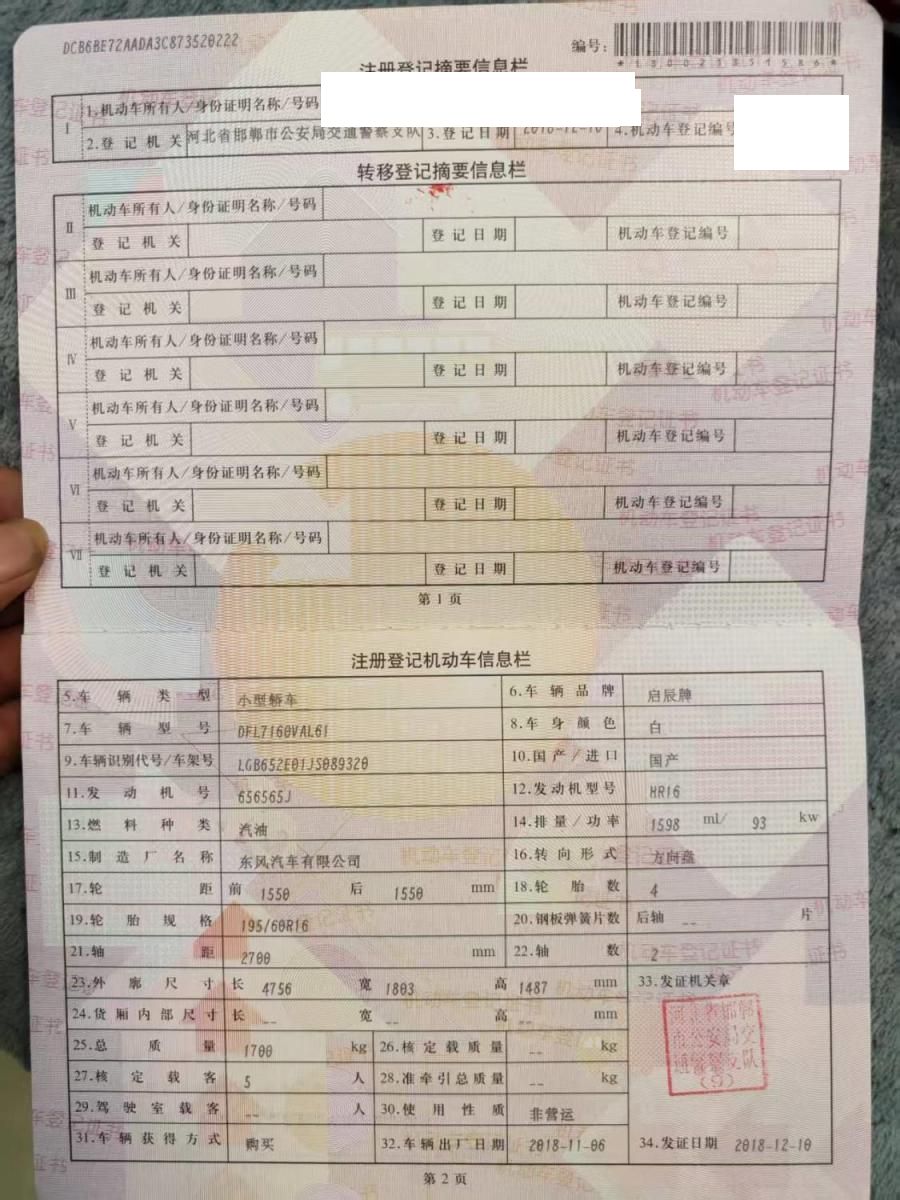 DCB6BE72AADA3C873520222
编号:
*130023351586*
注册登记摘要信息栏
I 1.机动车所有人/身份证明名称/号码
2.登记机关 河北省邯郸市公安局交通警察支队 3.登记日期 2018-12-10 4.机动车登记编号
转移登记摘要信息栏
II 机动车所有人/身份证明名称/号码
登记机关 登记日期 机动车登记编号
III 机动车所有人/身份证明名称/号码
登记机关 登记日期 机动车登记编号
IV 机动车所有人/身份证明名称/号码
登记机关 登记日期 机动车登记编号
V 机动车所有人/身份证明名称/号码
登记机关 登记日期 机动车登记编号
VI 机动车所有人/身份证明名称/号码
登记机关 登记日期 机动车登记编号
VII 机动车所有人/身份证明名称/号码
登记机关 登记日期 机动车登记编号
第 1 页
注册登记机动车信息栏
5.车辆类型 小型轿车 6.车辆品牌 启辰牌
7.车辆型号 DFL7160VAL61 8.车身颜色 白
9.车辆识别代号/车架号 LGB652E01JS089320 10.国产/进口 国产
11.发动机号 656565J 12.发动机型号 HR16
13.燃料种类 汽油 14.排量/功率 1598 ml/ 93 kw
15.制造厂名称 东风汽车有限公司 16.转向形式 方向盘
17.轮距 前 1550 后 1550 mm 18.轮胎数 4
19.轮胎规格 195/60R16 20.钢板弹簧片数 后轴 -- 片
21.轴距 2700 mm 22.轴数 2
23.外廓尺寸 长 4756 宽 1803 高 1487 mm 33.发证机关章
24.货厢内部尺寸 长 -- 宽 -- 高 -- mm
河北省邯郸
市公安局交
通警察支队
(9)
25.总质量 1700 kg 26.核定载质量 -- kg
27.核定载客 5 人 28.准牵引总质量 -- kg
29.驾驶室载客 -- 人 30.使用性质 非营运
31.车辆获得方式 购买 32.车辆出厂日期 2018-11-06 34.发证日期 2018-12-10
第 2 页